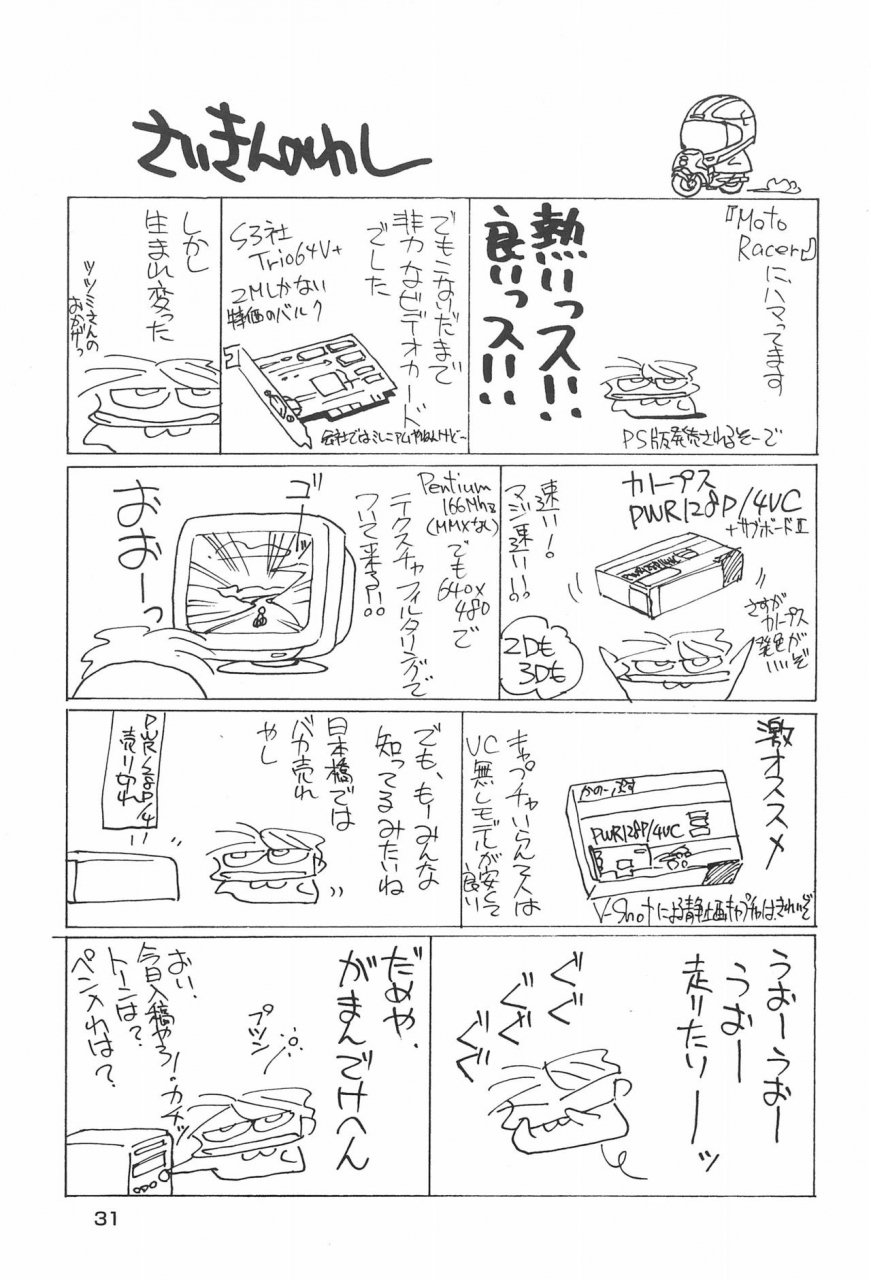 さいきんのわし
『Moto
Racer』
にハマってます
熱いっス!!
良いっス!!
PS版発売されるそーで
でもこないだまで
非力なビデオカード
でした
S3社
Trio64V+
2Mしかない
特価のバルク
会社ではミレニアムやねんけど〜
しかし
生まれ変った
ツツミさんの
おかげっ
カノープス
PWR128P/4VC
+サブボードⅡ
速い!
マジ速い!!
2Dも
3Dも
さすが
カノープス
発色が
いいぞ
Pentium
166Mhz
(MMXなし)
でも
640×
480で
テクスチャフィルタリングで
ついて来る!!
ゴーッ
おおーっ
激オススメ
かのーぷす
PWR128P/4VC
V-Shotによる静止画キャプチャはきれいぞ
キャプチャいらん人は
VC無しモデルが安くて
良い
でも、もーみんな
知ってるみたいね
日本橋では
バカ売れ
やし
PWR128P/4
売り切れ
うおーうおー
うおー
走りたりーッ
ぐぐ
ぐぐ
ぐぐ
だめや、
がまんでけへん
プツン
カチッ
おい、
今日入稿やろ!
トーンは?
ペン入れは?
31